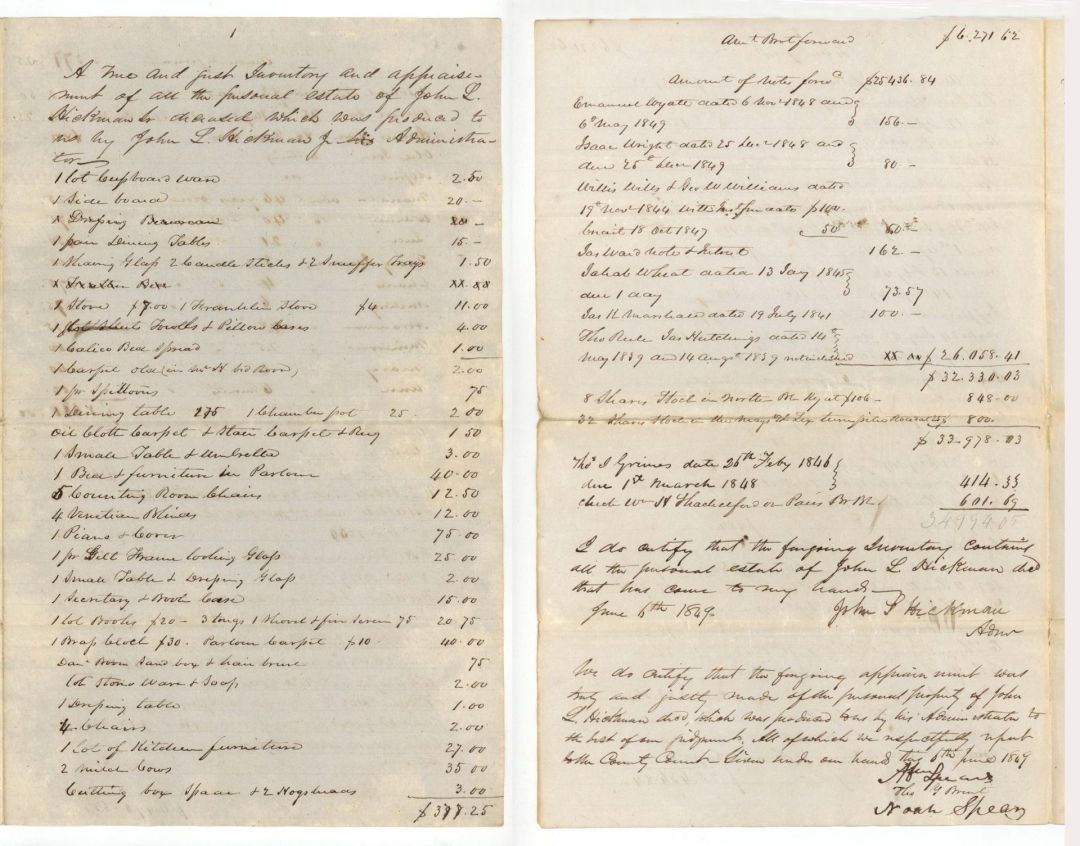 1
A True and just Inventory and appraise-
ment of all the personal estate of John L.
Hickman deceased which was produced to
us by John L. Hickman Administra-
tor
1 lot Cupboard ware 2.50
1 Side board 20.-
1 Dressing Bureau 20 -
1 pair Dining Tables 15.-
1 Shaving Glass 2 Candle Sticks & 2 Snuffer Trays 1.50
x Feather Bed xx.xx
1 Stove $7.00 1 Franklin Stove $4 11.00
1 lot Sheets Towels & Pillow Cases 4.00
1 Calico Bed Spread 1.00
1 Carpet old (in Mr H bed Room) 2.00
1 pr Spittoons 75
1 Dining table 175 1 Chamber pot 25- 2 00
Oil Cloth Carpet & Stair Carpet & Rug 1 50
1 Small Table & Umbrella 3.00
1 Bed & furniture in Parlour 40.00
5 Counting Room Chairs 12.50
4 Venetian Blinds 12.00
1 Piano & Cover 75.00
1 pr Gilt Frame looking Glass 25.00
1 Small Table & Dressing Glass 2.00
1 Secretary & Book Case 15.00
1 lot Books $20 - 3 tongs 1 Shovel & fire Screen 75 20 75
1 Brass Clock $30. Parlour Carpet $10. 40.00
Room Sand box & hair brush 75
lot Stone Ware & Soap 2.00
1 Dressing table 1.00
4 Chairs 2.00
1 Lot of Kitchen furniture 27.00
2 milch Cows 35 00
Cutting box & 2 Hogsheads 3.00
$377.25
Amt Brot forward $6.271 62
Amount of Notes forwd $25436.84
Emanuel Wyatt dated 6 Novr 1848 due
6th May 1849 156.-
Isaac Wright dated 25 Decr 1848 and
due 25th Decr 1849 80 -
Willis Wills & Geo W Williams dated
19th Novr 1844 with Int from date $100.
Credit 18 Oct 1847 50 50
Jas Ward note & Interest 162.-
Wheat dated 13 Jany 1845
due 1 day 73.57
Jas H Marshall dated 19 July 1841 100.-
Tho Jas Hutchings dated 14th
May 1839 and 14 Augst 1839 xx xx $26.058.41
$32.330.03
8 Shares Stock in Northern Bk Ky at $106- 848.00
32 Shares Stock in the Mays & Lex turnpike Road 800.
$33-978.03
Thos I Grimes date 26th Feby 1846
due 1st March 1848 414.33
check Wm H Shackelford on Paris Br Bk 601.69
34994.05
I do certify that the forgoing Inventory contains
all the personal estate of John L. Hickman decd
that has come to my hands
June 6th 1849. John L Hickman
Admr
We do certify that the forgoing appraisement was
truly and justly made of the personal property of John
L. Hickman decd, which was produced to us by his Administrator to
the best of our judgment. All of which we respectfully report
to the County Court Given under our hands this 6th June 1849
Spears
Thos Y Brent
Noah Spears